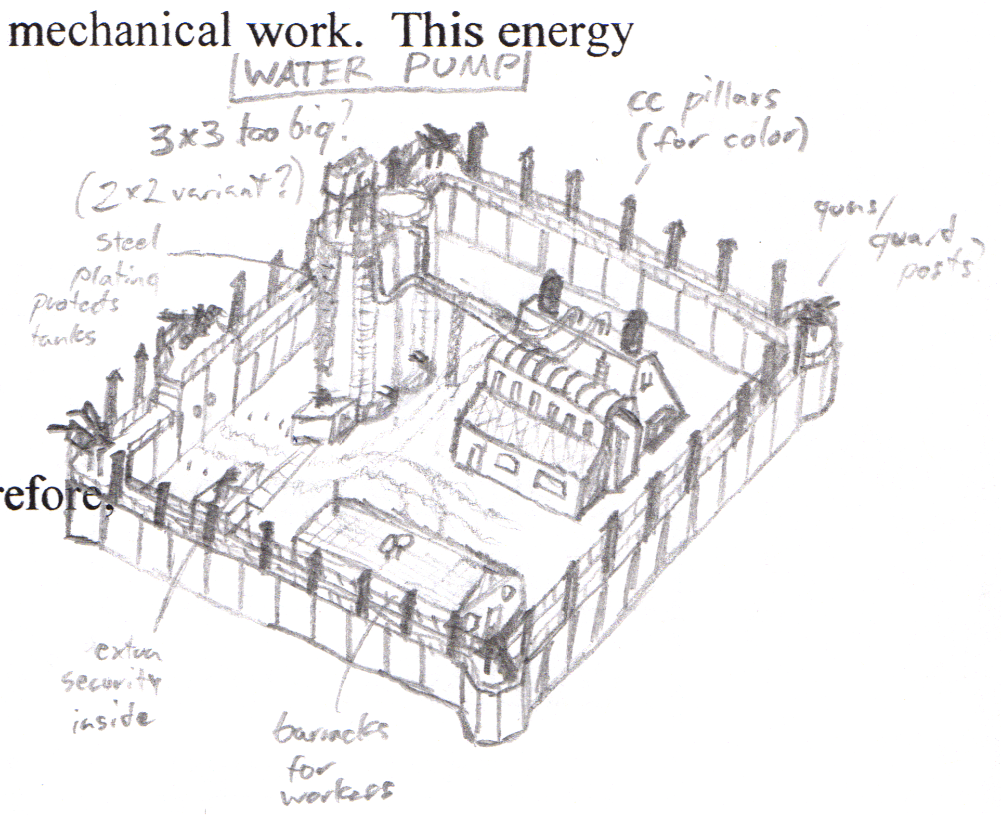 mechanical work. This energy
WATER PUMP
3x3 too big?
(2x2 variant?)
cc pillars
(for color)
guns/
guard
posts?
steel
plating
protects
tanks
refore,
extra
security
inside
barracks
for
workers